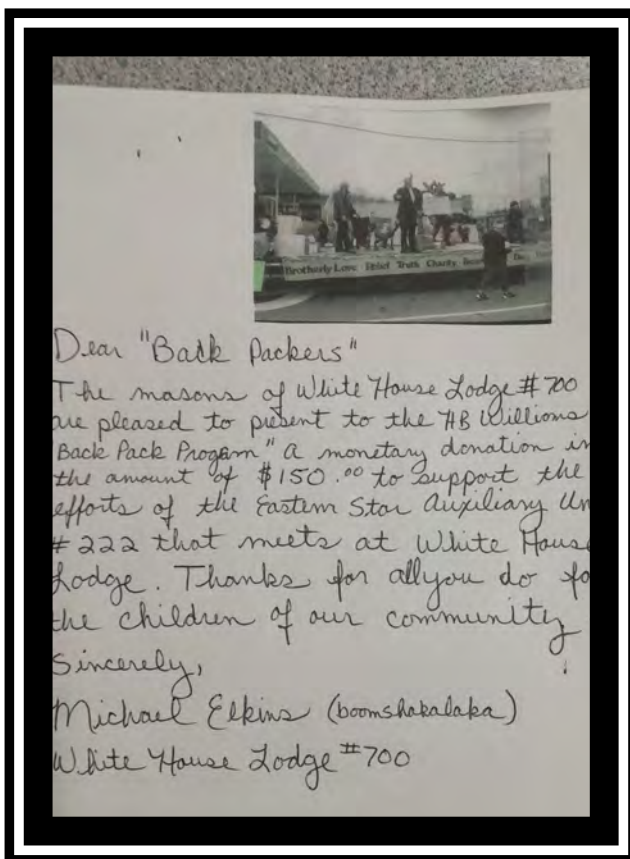 Brotherly Love Relief Truth Charity
Dear "Back Packers"
The masons of White House Lodge #700
are pleased to present to the HB Williams
"Back Pack Progam" A monetary donation in
the amount of $150.00 to support the
efforts of the Eastern Star Auxiliary Un
#222 that meets at White House
Lodge. Thanks for allyou do fo
the children of our community
Sincerely,
Michael Elkins (boomshakalaka)
White House Lodge #700